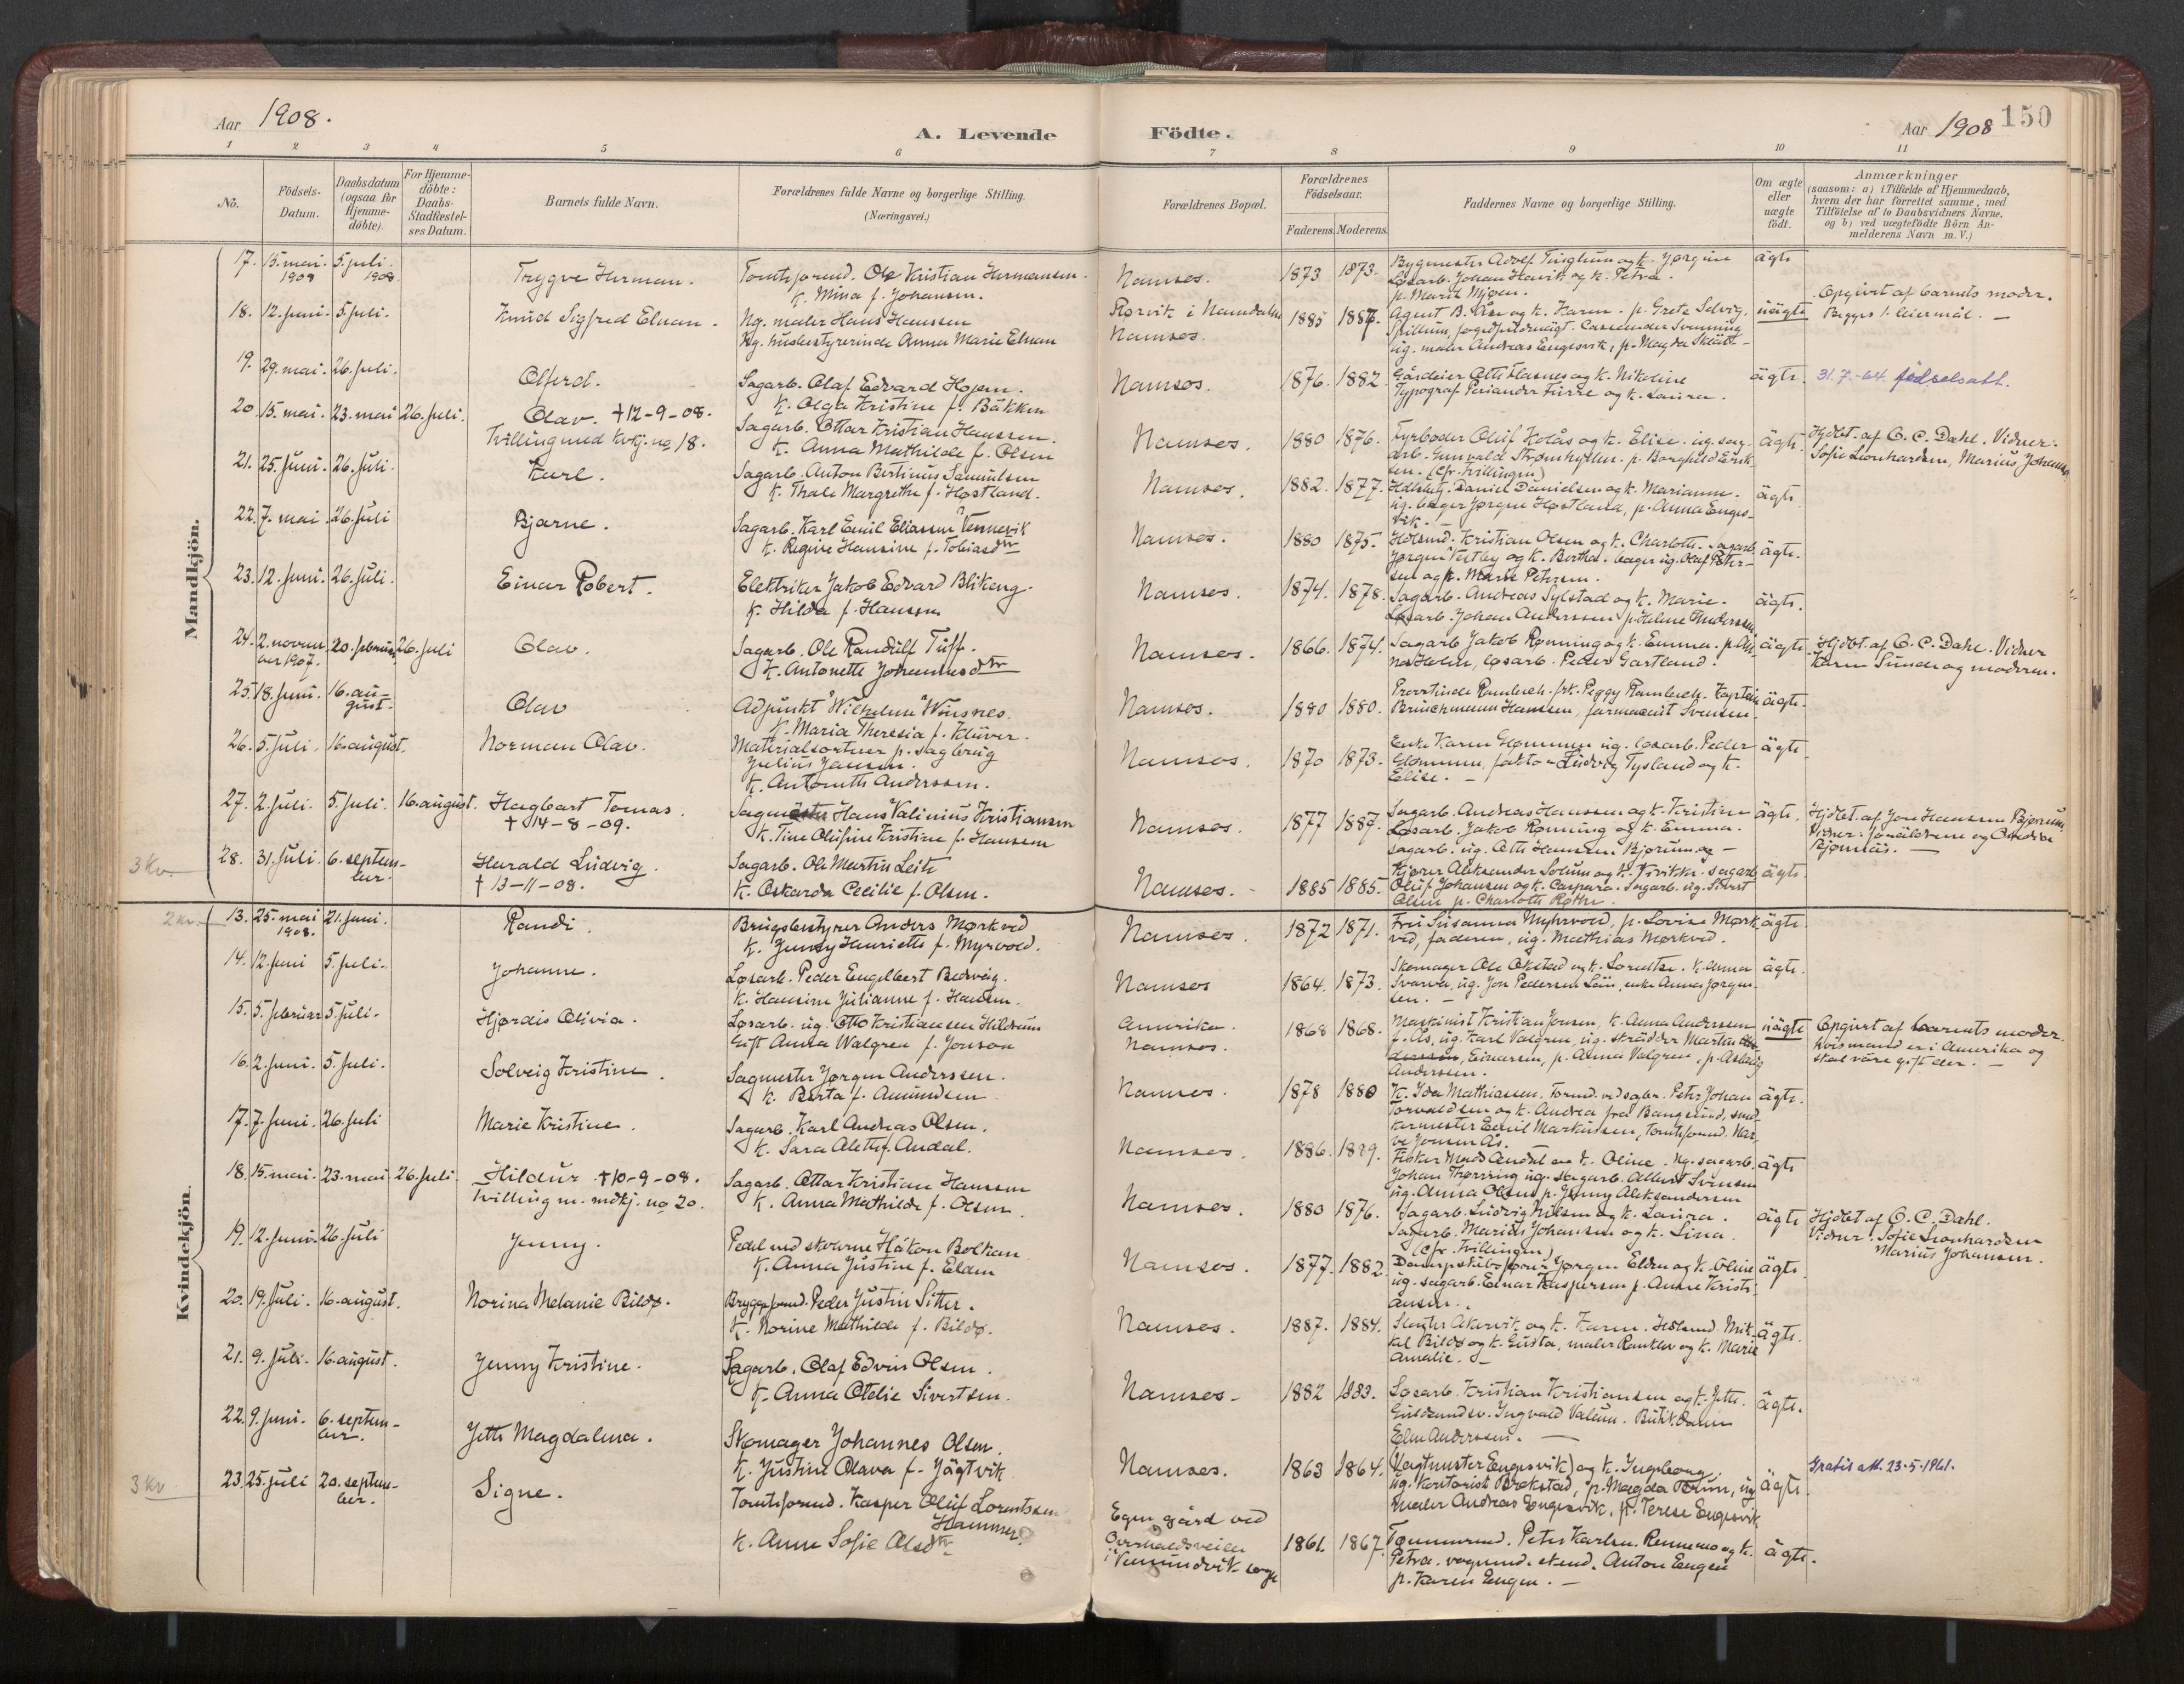 Aar 1908.
A. Levende
Födte.
Aar 1908
150
1 2 3 4 5 6 7 8 9 10 11
No.
Födsels-Datum.
Daabsdatum (ogsaa for Hjemme-döbte).
For Hjemme-döbte: Daabs-Stadfæstel-ses Datum.
Barnets fulde Navn.
Forældrenes fulde Navne og borgerlige Stilling.
(Næringsvei.)
Forældrenes Bopæl.
Forældrenes Födselsaar.
Faderens. Moderens.
Faddernes Navne og borgerlige Stilling.
Om ægte eller uægte födt.
Anmærkninger
(saasom: a) i Tilfælde af Hjemmedaab,
hvem der har forrettet samme, med
Tilföielse af to Daabsvidners Navne,
og b) ved uægtefödte Börn An-
melderens Navn m. V.)
Mandkjön.
17. 15. mai 1908 5. juli 1908 Trygve Herman. Tomteformd. Ole Kristian Hermansen.
K. Mina f. Johansen.
Namsos. 1873 1873.
Løsarb. Johan Havik og K. Petra.
p. Marit Mjøen.
ägte
18. 12. juni. 5. juli. Knud Sigfred Elnan. Ug. maler Hans Hanssen
Ug. husbestyrerinde Anna Marie Elnan
Rørvik i Namdalen
Namsos. 1885 1887.
ug. maler Andreas Engesvik, p. Magda
üägte
Opgivet af barnets moder.
Begges 1. leiermål. —
19. 29. mai. 26. juli. Olferd. Sagarb. Olaf Edvard Hojem.
K. Olga Kristine f. Bakken
Namsos. 1876. 1882.
Typograf Periander Furre og K. Laura.
ägte. 31.7.-64 fødselsatt.
20. 15. mai. 23. mai 26. juli. Olav. +12-9-08.
Tvilling med kvkj. no 18.
Sagarb. Ottar Kristian Hanssen.
K. Anna Mathilde f. Olsen
Namsos. 1880 1876.
Fyrbøder Oluf Kolås og K. Elise. ug. sag-
arb. Gunvald Strømhylden. p. Borghild Erik-
sen. (cfr. tvillingen)
ägte. Hjdbt. af O. C. Dahl. Vidner:
Sofie Leonhardsen, Marius Johansen
21. 25. juni. 26. juli. Karl. Sagarb. Anton Bertinus Samuelsen
K. Thale Margrethe f. Høstland.
Namsos. 1882. 1877.
Daniel Danielsen og K. Marianne.
ug. bager Jørgen Høstland, p. Anna Enges-
vik. —
ägte
22. 7. mai. 26. juli Bjarne. Sagarb. Karl Emil Eliassen Vennevik
K. Regine Hansine f. Tobiasdtr
Namsos. 1880 1875.
Kristian Olsen og K. Charlotte. sagarb.
Jørgen Vestby og K. Bertha. bager ug. Olaf Peter-
sen og K. Marie Petersen.
ägte.
23. 12. juni. 26. juli. Einar Robert. Elektriker Jakob Edvard Blikeng.
K. Hilda f. Hanssen
Namsos. 1874. 1878.
Sagarb. Andreas Sylstad og K. Marie.
Løsarb. Johan Anderssen p. Helene Anderssen
ägte.
24. 2. novem-ber 1907. 20. februar 26. juli Olav. Sagarb. Ole Randulf Tuff.
K. Antonette Johannesdtr
Namsos. 1866. 1874.
Sagarb. Jakob Rønning og K. Emma.
løsarb. Peder Gartland.
ägte. Hjdbt. af O. C. Dahl. Vidner
Karen Sunde og moderen.
25. 18. juni. 16. au-gust. Olav Adjunkt Wilhelm Wiisnes.
K. Maria Theresia f. Klüver.
Namsos. 1880 1880.
Provstinde Rambech. frk. Peggy Rambech. Kaptein
Brinchmann Hanssen, farmaceut Svensen.
ägte.
26. 5. juli. 16. august. Norman Olav. Materialsorterer p. sagbrug
Julius Jansen.
K. Antonette Anderssen.
Namsos. 1870 1873.
Enke Karen Glømmen ug. løsarb. Peder
Glømmen, faktor Ludvig Tysland og K.
Elise. —
ägte.
27. 2. juli. 5. juli. 16. august. Hagbart Tomas.
+ 14-8-09.
Sagmester Hans Valinius Kristiansen
K. Tine Olufine Kristine f. Hanssen
Namsos. 1877 1887.
Sagarb. Andreas Hanssen og K. Kristine
Løsarb. Jakob Rønning og K. Emma.
sagarb. ug. Otto Hanssen Bjørum
ägte. Hjdbt. af Jon Hanssen Bjørum
Vidner: forældrene og
Bjørnås. —
3 Kv.
28. 31. juli. 6. septem-ber. Harald Ludvig.
+ 13-11-08.
Sagarb. Ole Martin Leite
K. Oskarda Cecilie f. Olsen.
Namsos. 1885 1885.
Kjører Aleksander Solum og K. Fredrikke. sagarb.
Oluf Johansen og K. Caspara. Sagarb. ug. Sivert
Olsen p. Charlotte Røthe.
ägte.
Kvindekjön.
2 kv.
13. 25. mai 1908. 21. juni. Randi. Brugsbestyrer Anders Mørkved
K. Jenny Henriette f. Myrvold.
Namsos. 1872 1871.
Frü Susanna Myhrvold, p. Lovise Mørk-
ved, faderen, ug. Mathias Mørkved.
ägte.
14. 12. juni 5. juli. Johanne. Løsarb. Peder Engelbert Bedvåg.
K. Hansine Julianne f. Hansen.
Namsos 1864. 1873.
Skomager Ole Økstad og K. Lorentse. K. Anna
Svarva, ug. Jon Pedersen Lein, enke Anna Jørgen-
sen. —
ägte.
15. 5. februar 5. juli. Hjørdis Olivia. Løsarb. ug. Otto Kristiansen Hildrum
Gift Anna Walgren f. Jonson
Amerika.
Namsos. 1868 1868.
Maskinist Kristian Jensen, K. Anna Anderssen
f. Ås, ug. Karl Valgren, ug. skrädder Martin
Einarsen, p. Anna Valgren, p. Aslaug
Anderssen.
üägte Opgivet af barnets moder.
hvis mand er i Amerika og
skal være gift der. —
16. 2. juni. 5. juli. Solveig Kristine. Sagmester Jørgen Anderssen.
K. Berta f. Amundsen
Namsos. 1878 1880
K. Ida Mathiassen, Formd. ved sagbr. Peter Johan
Torvaldsen og K. Andrea fra Bangsund, smed-
Emil Markussen, Tomteformd. Har-
Jensen Ås.
ägte.
17. 7. juni. 26. juli Marie Kristine. Sagarb. Karl Andreas Olsen.
K. Sara Alethe f. Andal.
Namsos. 1886. 1889.
Fisker Mads Andal og K. Oline. ug. sagarb.
Johan Thorring ug. sagarb. Albert Svensen
ug. Anna Olsen p. Jenny Aleksandersen
ägte
18. 15. mai. 23. mai. 26. juli Hildur +10-9-08.
Tvilling m. mdkj. no 20.
Sagarb. Ottar Kristian Hanssen
K. Anna Mathilde f. Olsen.
Namsos. 1880 1876.
Sagarb. Ludvig Nilsen og K. Laura.
Sagarb. Marius Johansen og K. Lina.
(cfr. tvillingen)
ägte Hjdbt af O. C. Dahl.
Vidner: Sofie Leonhardsen
Marius Johansen.
19. 12. juni. 26. juli Jenny. Pedel ved skolerne Håkon Bolkan
K. Anna Justine f. Elden
Namsos. 1877. 1882.
Jørgen Elden og K. Oline
ug. sagarb. Einar Kaspersen p. Anne Kristi-
ansen.
ägte.
20. 19. juli. 16. august. Norina Melanie Bildø. Bryggeformd. Peder Justin Sitter.
K. Norine Mathilde f. Bildø.
Namsos. 1887. 1884.
Slagter Akervik og K. Karen. Mik-
kal Bildø og K. Gusta, maler Ranklev og K. Marie
Amalie. —
ägte.
21. 9. juli. 16. august. Jenny Kristine. Sagarb. Olaf Edvin Olsen.
K. Anna Otelie Sivertsen.
Namsos. 1882 1883.
Løsarb. Kristian Kristiansen og K. Jette.
Guldsmedsv. Ingvald Valøen. Butik.dame
Elen Anderssen. —
ägte.
22. 9. juni. 6. septem-ber. Jette Magdalena. Skomager Johannes Olsen.
K. Justine Olava f. Jägtvik
Namsos. 1863 1864.
Vegtmester Engesvik og K. Ingeborg.
ug. kontorist Brekstad, p. Magda ug.
maler Andreas Engesvik, p. Terese Engesvik
ägte. Gratis att. 23-5-1961.
3 Kv
23. 25. juli 20. septem-ber. Signe. Tomteformd. Kasper Oluf Lorentssen
Hammer.
K. Anne Sofie Olsdtr
Egen gård ved
Overhaldsveien
i Vemundvik sogn
1861. 1867.
Peter Karlsen Rennemo og K.
Petra. Anton Engen
p. Karen Engen. —
ägte.